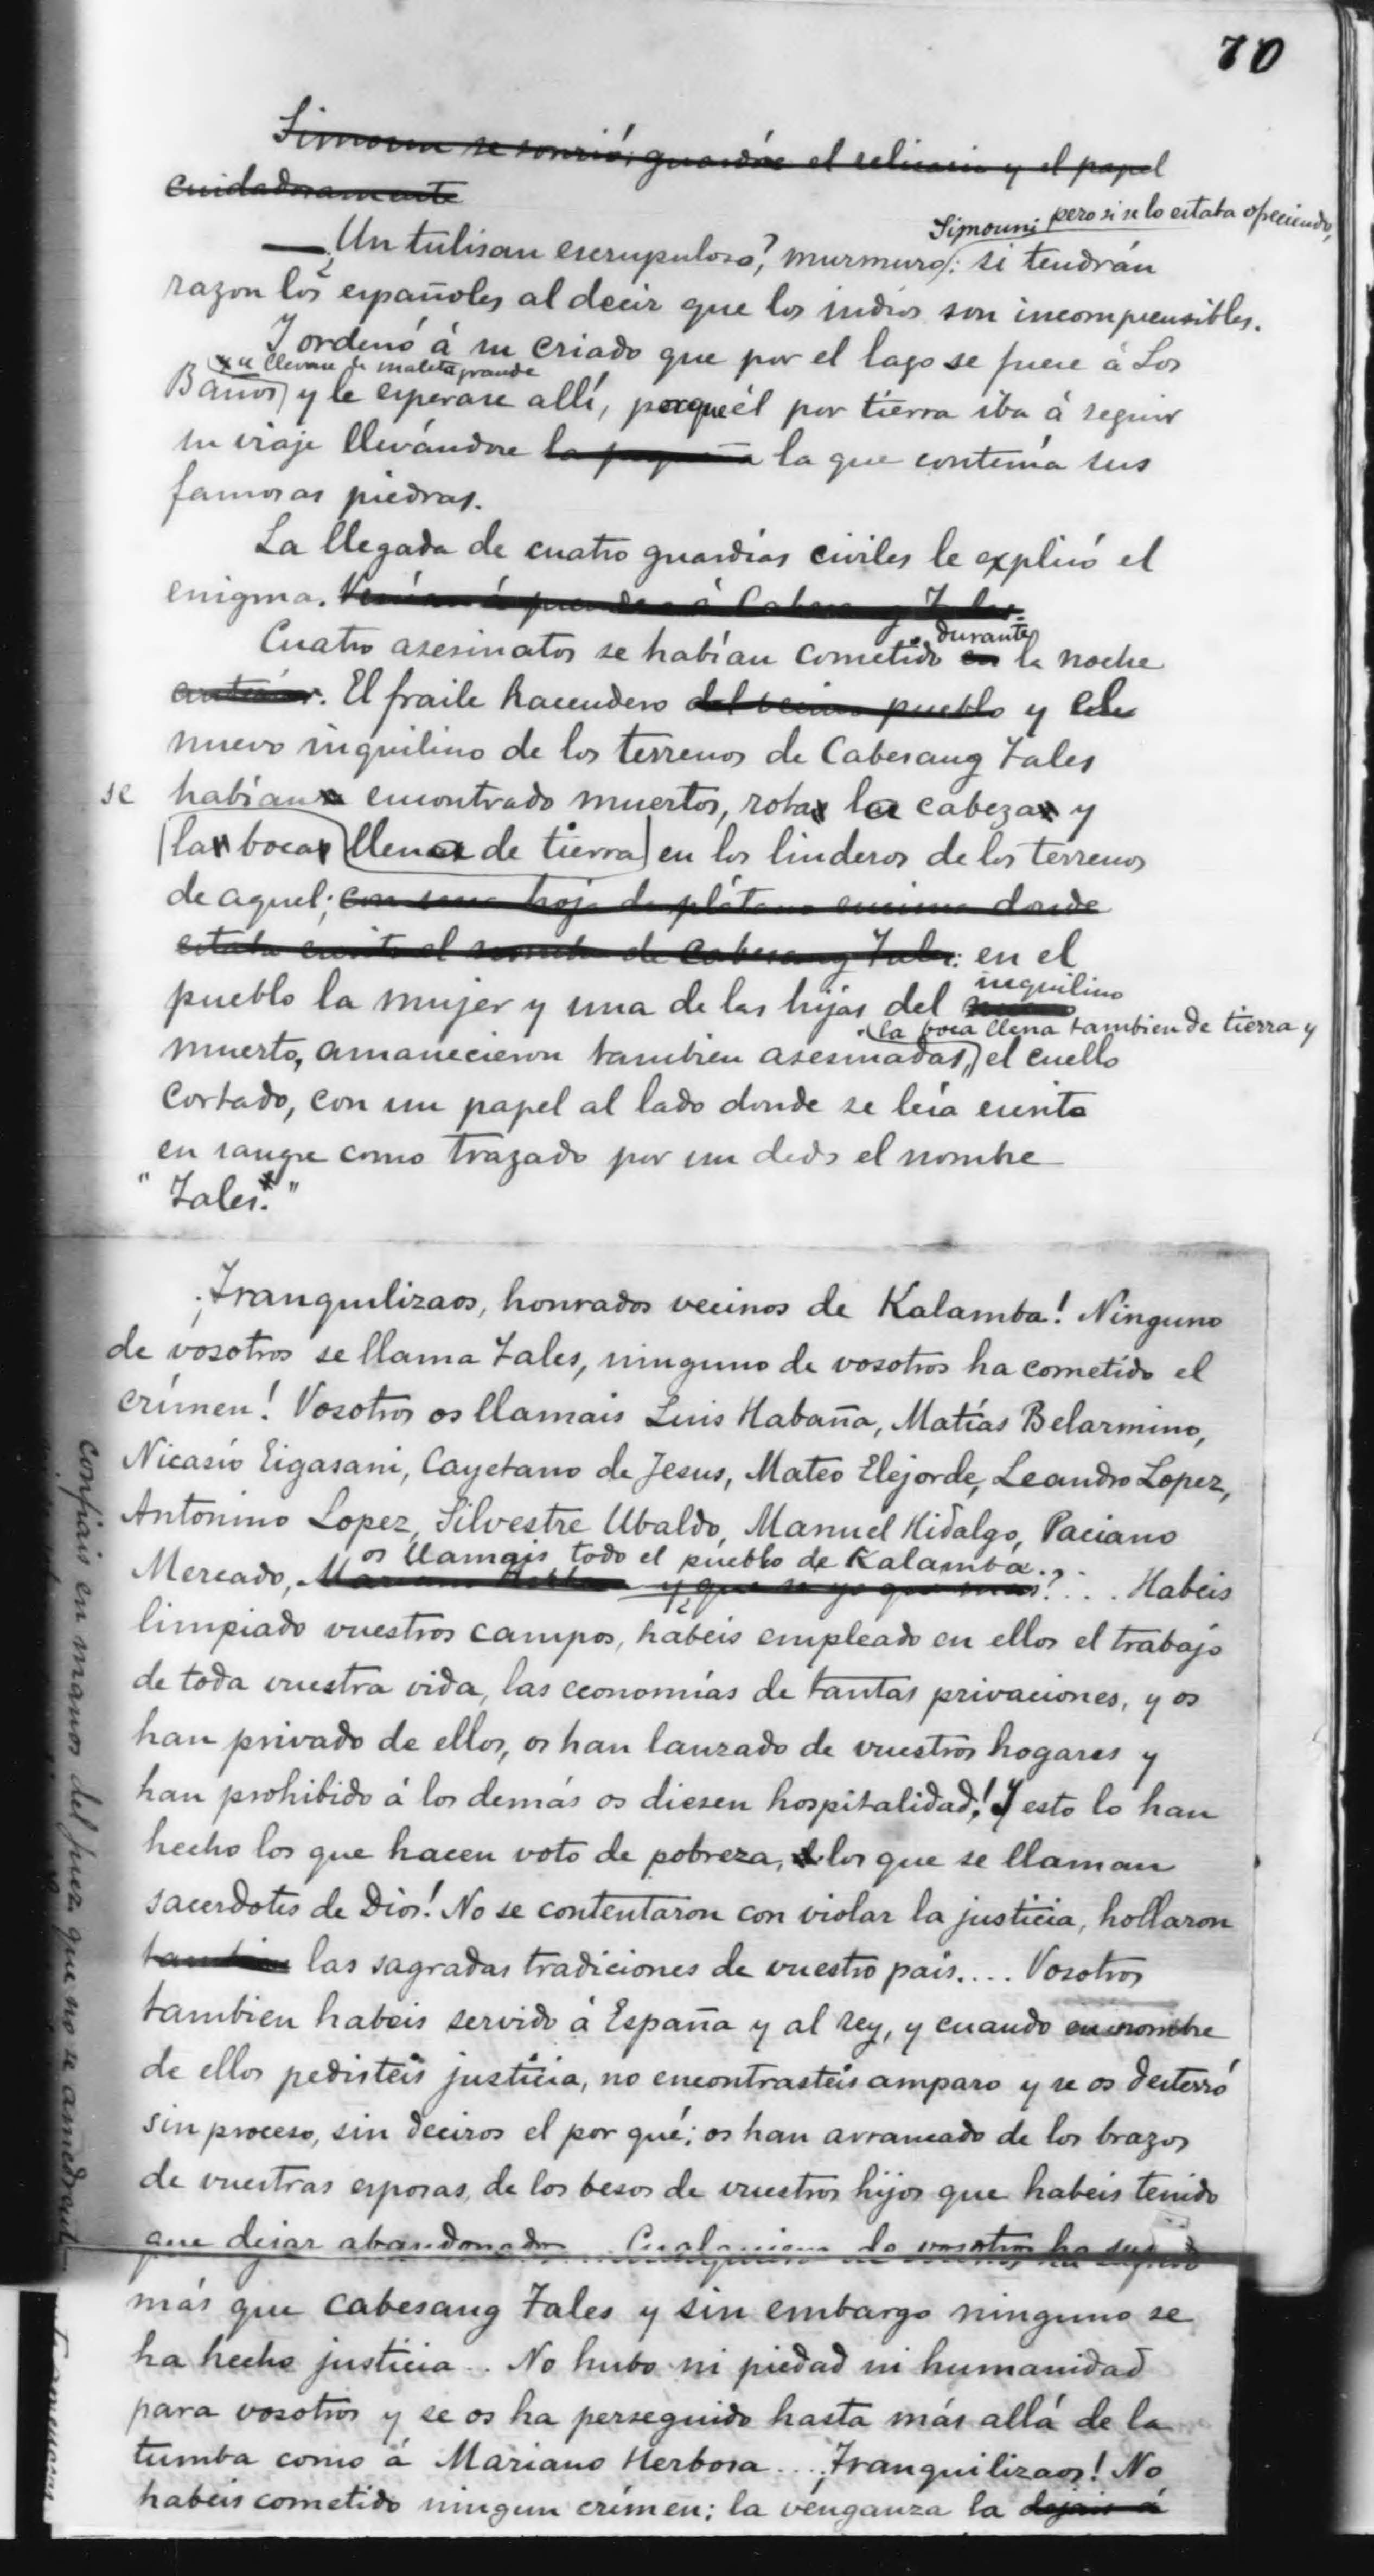 70
Simoun se sonrió; guardóse el relicario y el papel
cuidadosamente
Simoun; pero si se lo estaba ofreciendo,
— ¿Un tulisan escrupuloso?, murmuró: si tendrán
razon los españoles al decir que los indios son incomprensibles.
Y ordenó á su criado que por el lago se fuese á Los
se llevase la maleta grande
Baños y le esperase allí, porque él por tierra iba á seguir
su viaje llevándose la pequeña la que contenía sus
famosas piedras.
La llegada de cuatro guardias civiles le explicó el
enigma. Venían á prender á Cabesang Tales.
durante
Cuatro asesinatos se habían cometido en la noche
anterior. El fraile hacendero del vecino pueblo y el
nuevo inquilino de los terrenos de Cabesang Tales
se habían encontrado muertos, rota la cabeza y
la boca llena de tierra en los linderos de los terrenos
de aquel; con una hoja de plátano encima donde
estaba escrito el nombre de Cabesang Tales: en el
inquilino
pueblo la mujer y una de las hijas del
la boca llena tambien de tierra y
muerto, amanecieron tambien asesinadas, el cuello
cortado, con un papel al lado donde se leía escrito
en sangre como trazado por un dedo el nombre
"Tales."
¡Tranquilizaos, honrados vecinos de Kalamba! Ninguno
de vosotros se llama Tales, ninguno de vosotros ha cometido el
crímen! Vosotros os llamais Luis Habaña, Matías Belarmino,
Nicasio Eigasani, Cayetano de Jesus, Mateo Elejorde, Leandro Lopez,
Antonino Lopez, Silvestre Ubaldo, Manuel Hidalgo, Paciano
os llamais todo el pueblo de Kalamba
Mercado, Mariano Herbosa y ¿que se yo que mas?... Habeis
limpiado vuestros campos, habeis empleado en ellos el trabajo
de toda vuestra vida, las economías de tantas privaciones, y os
han privado de ellos, os han lanzado de vuestros hogares y
han prohibido á los demás os diesen hospitalidad! Y esto lo han
hecho los que hacen voto de pobreza, los que se llaman
sacerdotes de Dios! No se contentaron con violar la justicia, hollaron
tambien las sagradas tradiciones de vuestro país.... Vosotros
tambien habeis servido á España y al rey, y cuando en nombre
de ellos pedisteis justicia, no encontrasteis amparo y se os desterró
sin proceso, sin deciros el por qué; os han arrancado de los brazos
de vuestras esposas, de los besos de vuestros hijos que habeis tenido
que dejar abandonados... Cualquiera de vosotros ha sufrido
más que Cabesang Tales y sin embargo ninguno se
ha hecho justicia... No hubo ni piedad ni humanidad
para vosotros y se os ha perseguido hasta más allá de la
tumba como á Mariano Herbosa.... ¡Tranquilizaos! No
habeis cometido ningun crímen; la venganza la dejais á
confiais en manos del juez que no se amedrenta